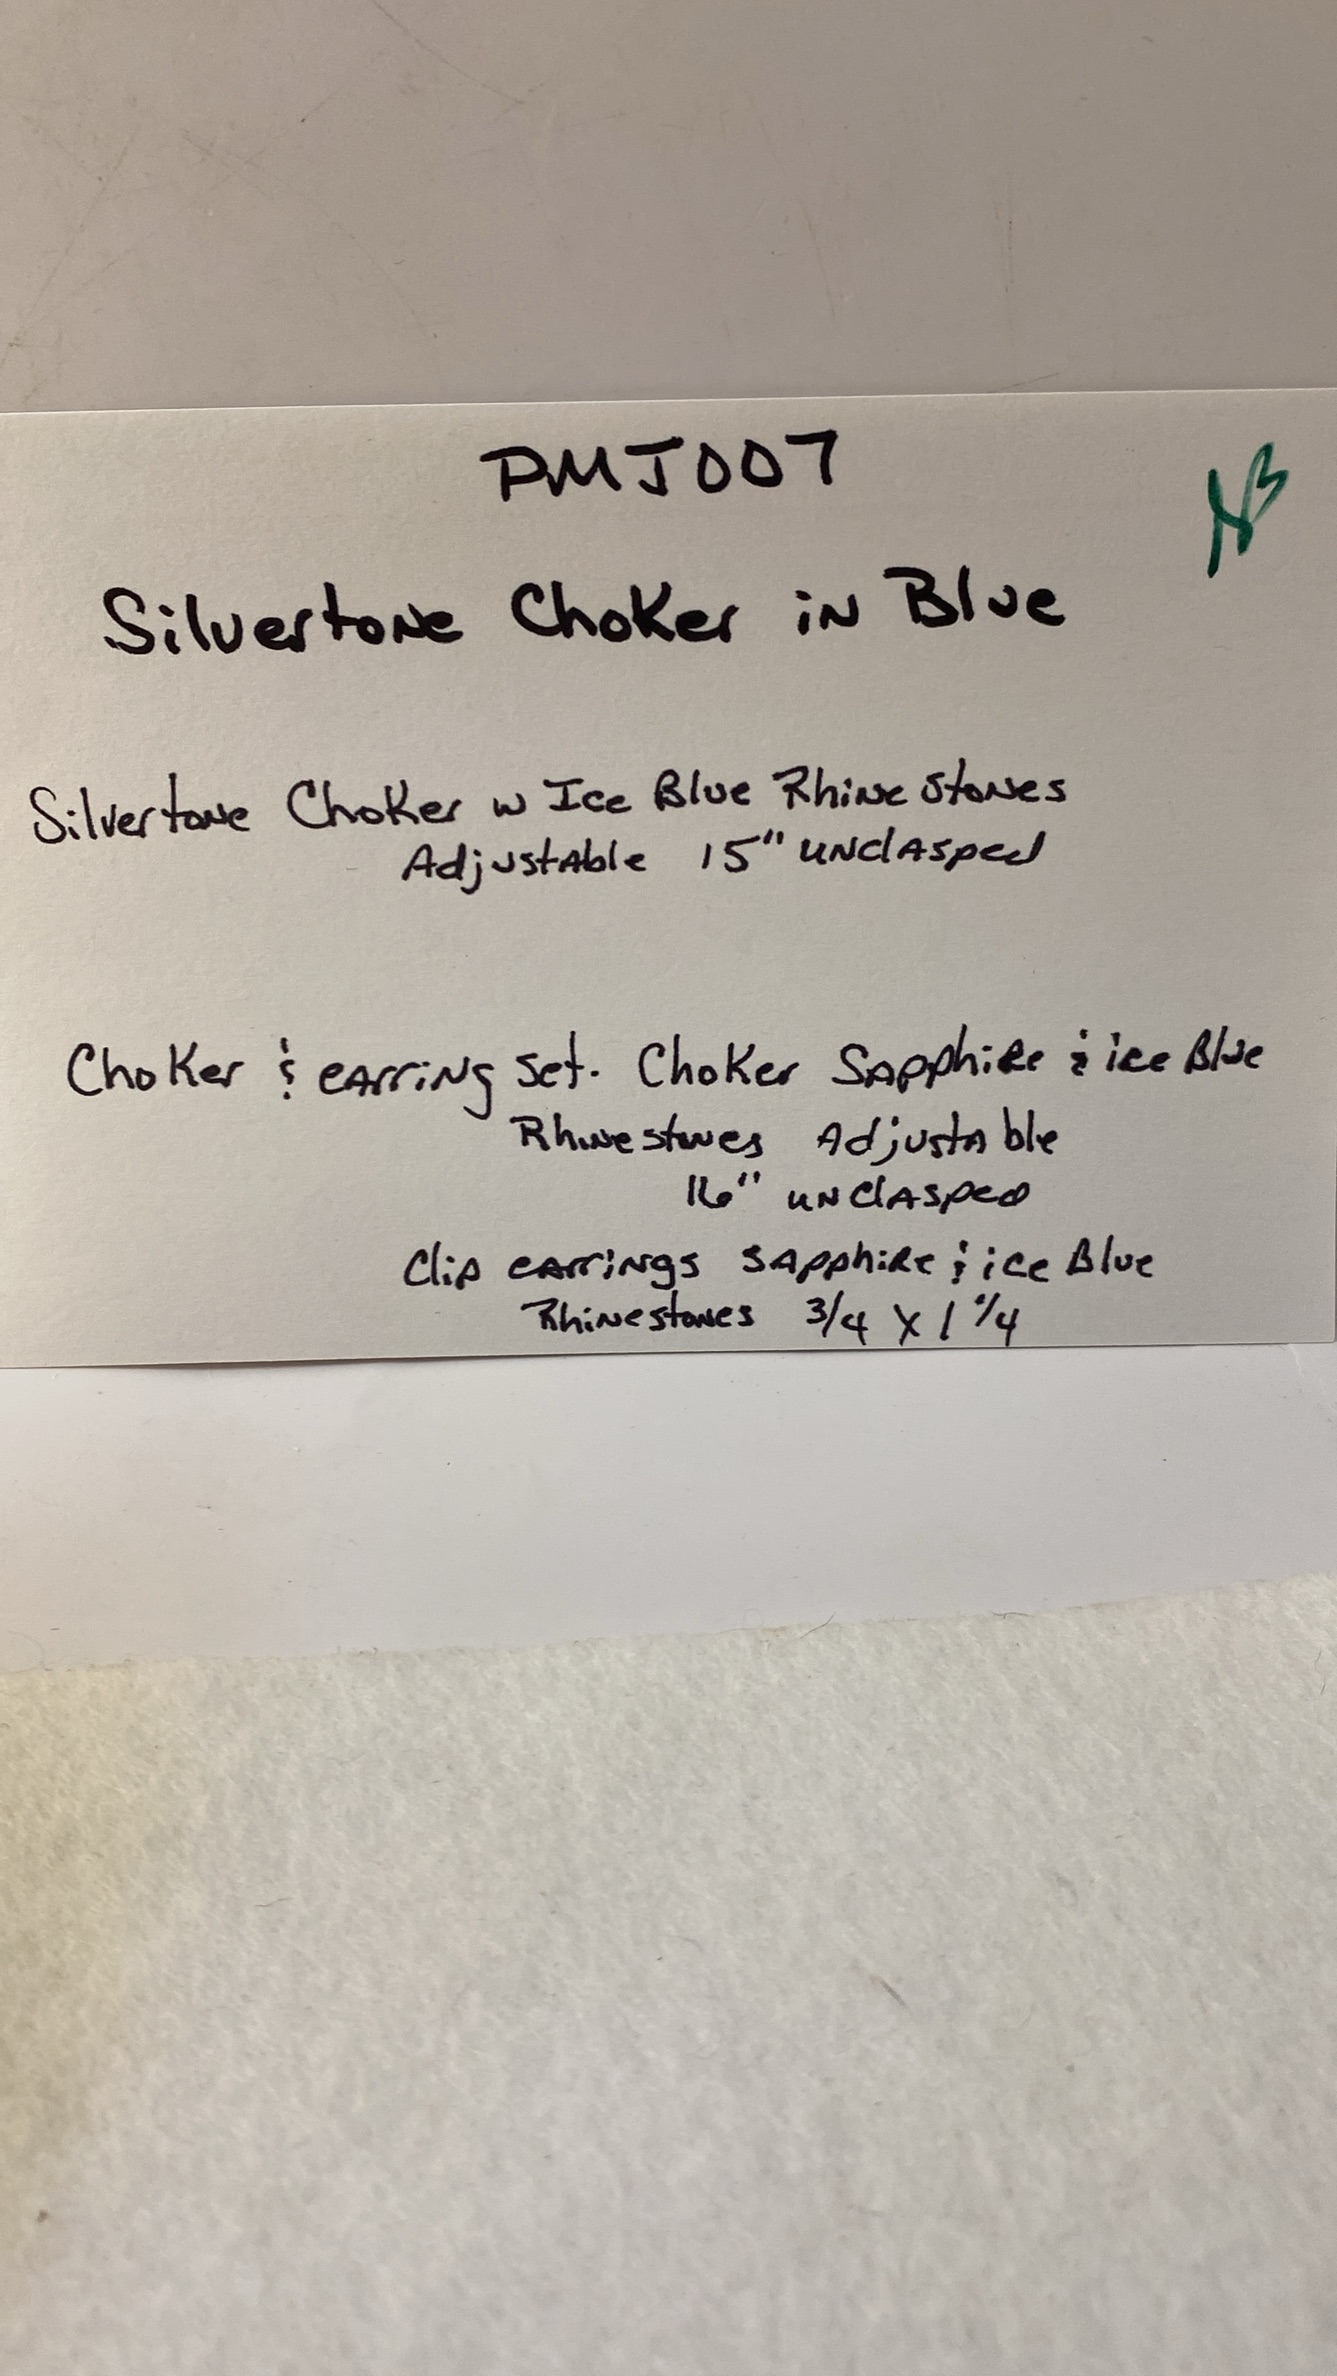 PMJ007
Silvertone Choker in Blue
Silvertone Choker w Ice Blue Rhinestones
Adjustable 15" unclasped
Choker & earring set. Choker Sapphire & ice Blue
Rhinestones Adjustable
16" unclasped
Clip earrings sapphire & ice Blue
Rhinestones 3/4 x 1 1/4